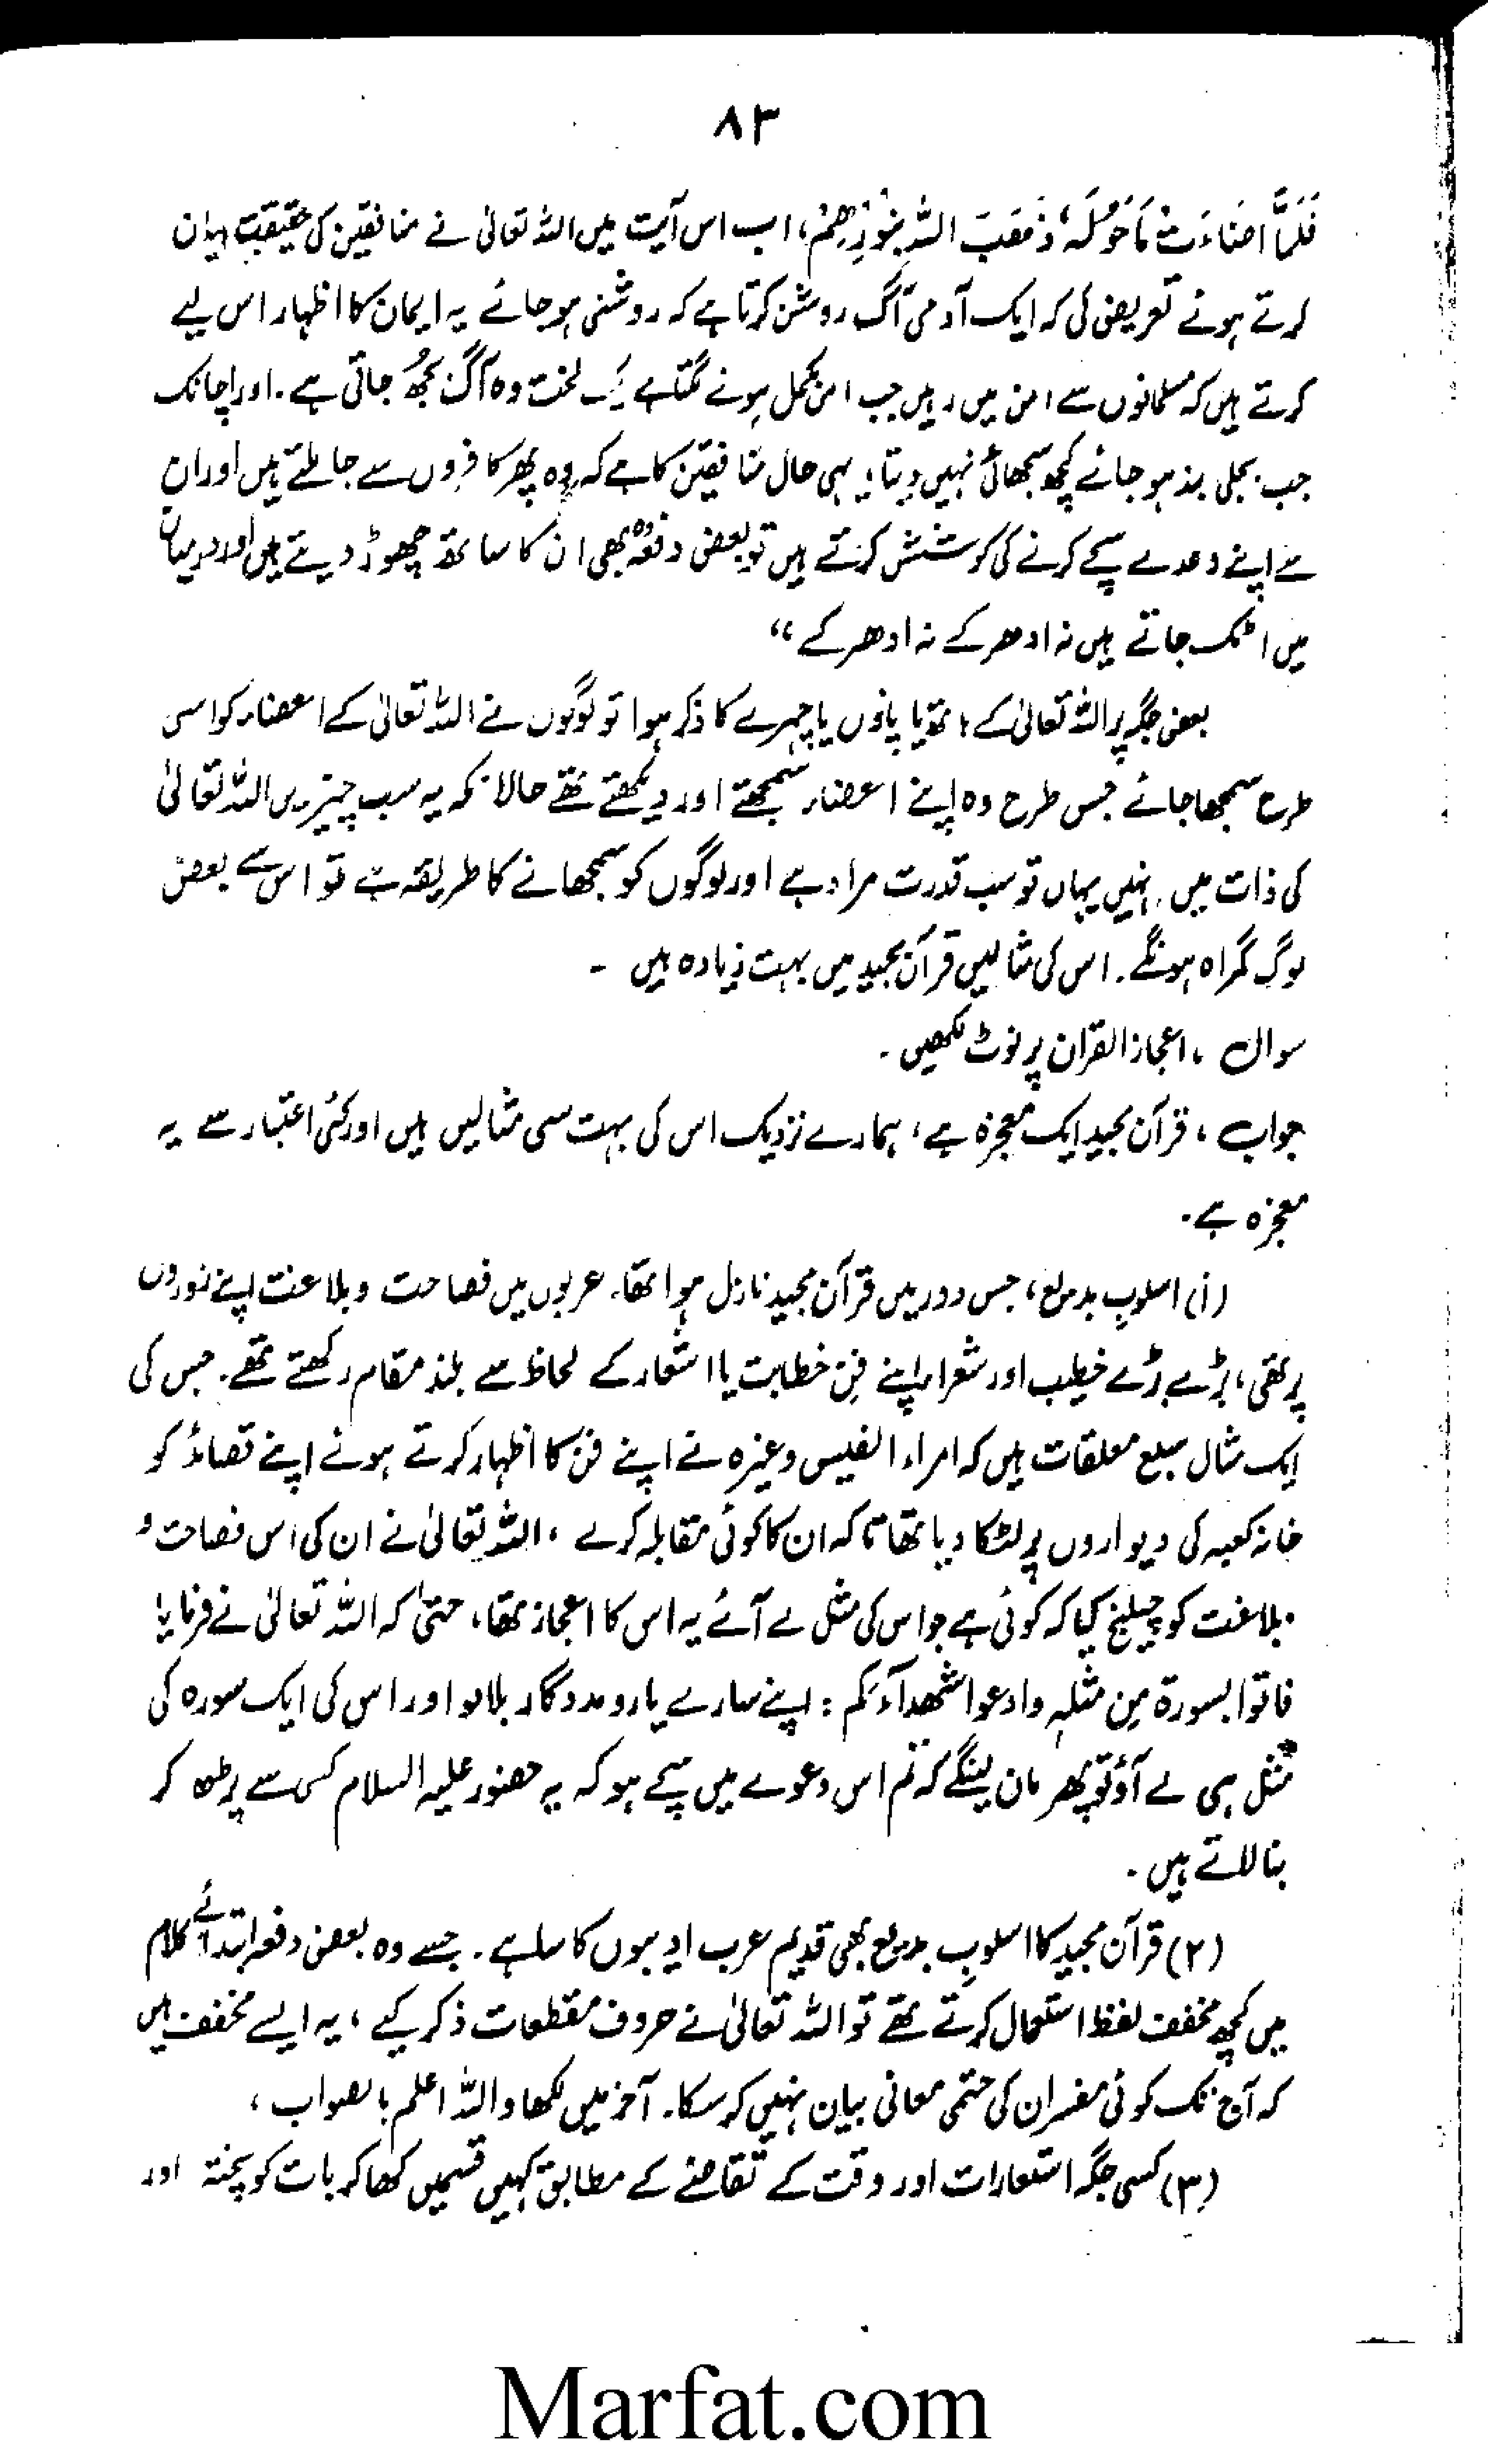 ۸۳
فَلَمَّا اَضَاءَتْ مَا حَوْلَہٗ ذَھَبَ اللّٰہُ بِنُوْرِھِمْ، اب اس آیت میں اللہ تعالیٰ نے منافقین کی حقیقت بیان
کرتے ہوئے تعریض کی کہ ایک آدمی آگ روشن کرتا ہے کہ روشنی ہو جائے یہ ایمان کا اظہار اس لیے
کرتے ہیں کہ مسلمانوں سے امن میں رہیں جب امن مکمل ہونے لگتا ہے یک لخت وہ آگ بجھ جاتی ہے۔ اور اچانک
جب بجلی بند ہو جائے کچھ سجھائی نہیں دیتا، یہی حال منافقین کا ہے کہ وہ پھر کافروں سے جا ملتے ہیں اور ان
سے اپنے وعدے سچے کرنے کی کوشش کرتے ہیں تو بعض دفعہ وہ بھی ان کا ساتھ چھوڑ دیتے ہیں اور درمیان
میں اٹک جاتے ہیں نہ ادھر کے نہ ادھر کے“
بعض جگہ پر اللہ تعالیٰ کے ہاتھ یا پاؤں یا چہرے کا ذکر ہوا تو لوگوں نے اللہ تعالیٰ کے اعضاء کو اسی
طرح سمجھا جائے جس طرح وہ اپنے اعضاء سمجھتے اور دیکھتے تھے حالانکہ یہ سب چیزیں اللہ تعالیٰ
کی ذات میں نہیں یہاں تو سب قدرت مراد ہے اور لوگوں کو سمجھانے کا طریقہ ہے تو اس سے بعض
لوگ گمراہ ہونگے۔ اس کی مثالیں قرآن مجید میں بہت زیادہ ہیں ۔
سوال ، اعجاز القرآن پر نوٹ لکھیں ۔
جواب ، قرآن مجید ایک معجزہ ہے، ہمارے نزدیک اس کی بہت سی مثالیں ہیں اور کئی اعتبار سے یہ
معجزہ ہے ۔
(i) اسلوبِ بدیع، جس دور میں قرآن مجید نازل ہوا تھا۔ عربوں میں فصاحت و بلاغت اپنے زوروں
پر تھی، بڑے بڑے خطیب اور شعراء اپنے فنِ خطابت یا اشعار کے لحاظ سے بلند مقام رکھتے تھے۔ جس کی
ایک مثال سبع معلقات ہیں کہ امراء القیس وغیرہ نے اپنے فن کا اظہار کرتے ہوئے اپنے قصائد کو
خانہ کعبہ کی دیواروں پر لٹکا دیا تھا تا کہ ان کا کوئی مقابلہ کرے ، اللہ تعالیٰ نے ان کی اس فصاحت و
بلاغت کو چیلنج کیا کہ کوئی ہے جو اس کی مثل لے آئے یہ اس کا اعجاز تھا، حتیٰ کہ اللہ تعالیٰ نے فرمایا
فاتوا بسورۃ من مثلہٖ وادعوا شھدآءکم : اپنے سارے یار و مددگار بلا لو اور اس کی ایک سورہ کی
مثل ہی لے آؤ تو پھر مان لینگے کہ تم اس دعوے میں سچے ہو کہ یہ حضور علیہ السلام کسی سے پڑھ کر
بنا لاتے ہیں ۔
(۲) قرآن مجید کا اسلوبِ بدیع بھی قدیم عرب ادیبوں کا سا ہے۔ جسے وہ بعض دفعہ ابتدائے کلام
میں کچھ مخفف لفظ استعمال کرتے تھے تو اللہ تعالیٰ نے حروف مقطعات ذکر کیے ، یہ ایسے مخفف ہیں
کہ آج تک کوئی مفسر ان کی حتمی معانی بیان نہیں کر سکا۔ آخر میں لکھا واللہ اعلم بالصواب ،
(۳) کسی جگہ استعارات اور وقت کے تقاضے کے مطابق کہیں قسمیں کھا کر بات کو پختہ اور
Marfat.com